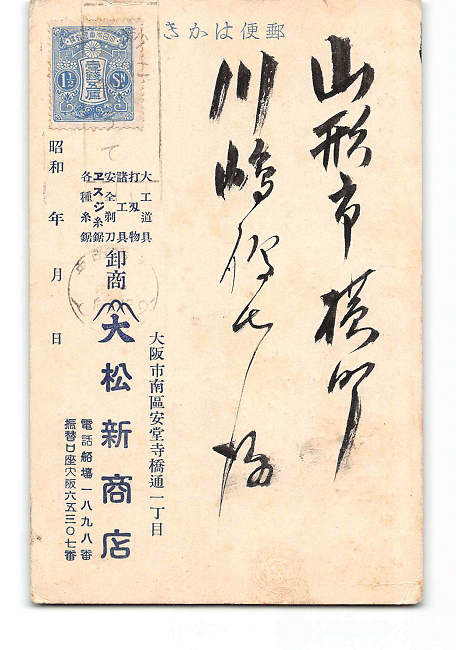 郵便はかき
山形市横町
川嶋
大阪市南區安堂寺橋通一丁目
大工道具
打刃物
諸工具
安全剃刀
ヱスジ糸鋸
各種糸鋸
卸商
大松新商店
電話船場一八九八番
振替口座大阪六五三〇七番
昭和 年 月 日
壹錢五厘
1½ Sn